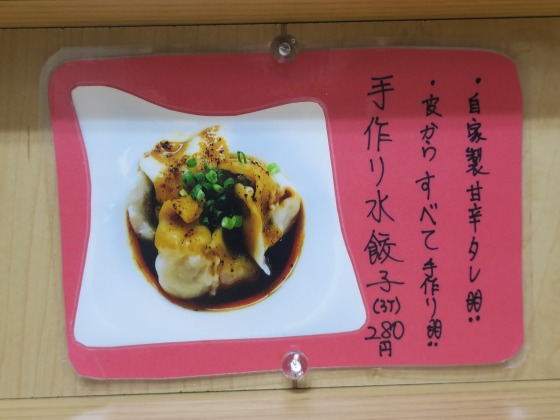 ・自家製甘辛タレ!!!
・皮からすべて手作り!!!
手作り水餃子(3ケ)280円